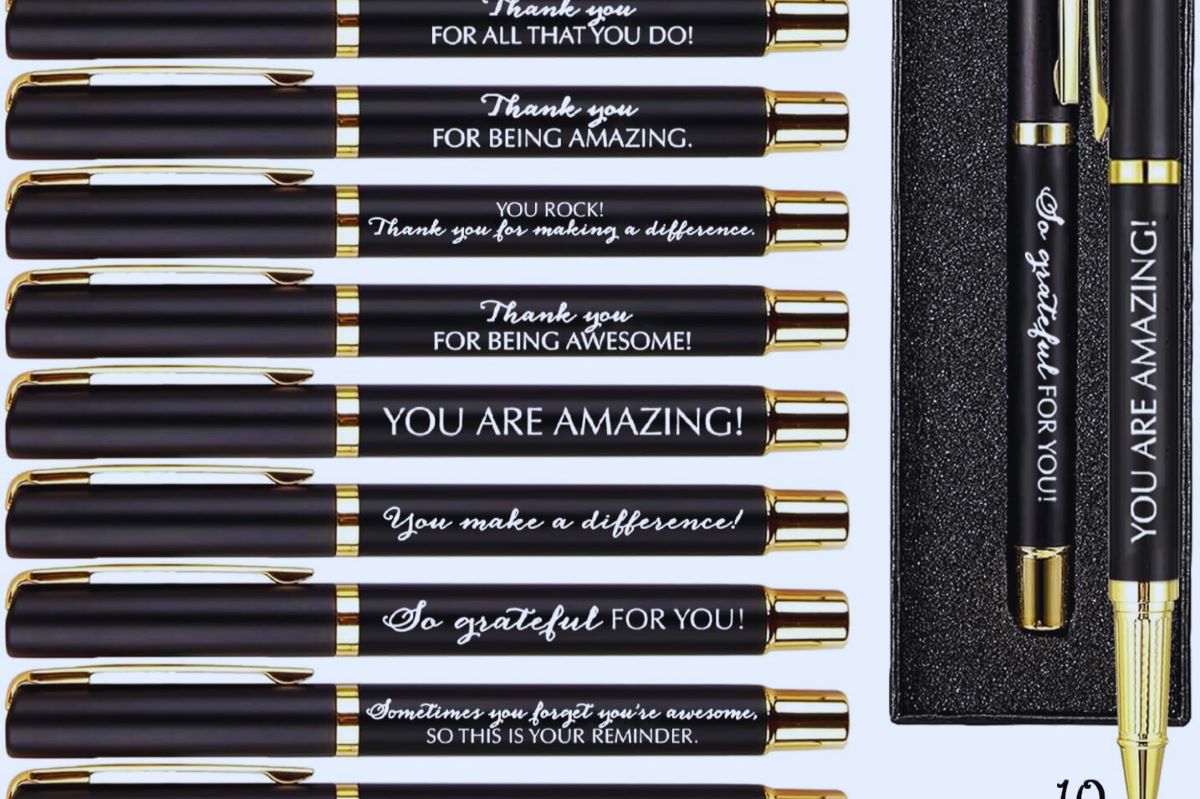 Thank you
FOR ALL THAT YOU DO!
Thank you
FOR BEING AMAZING.
YOU ROCK!
Thank you for making a difference.
Thank you
FOR BEING AWESOME!
YOU ARE AMAZING!
You make a difference!
So grateful FOR YOU!
Sometimes you forget you're awesome,
SO THIS IS YOUR REMINDER.
So grateful FOR YOU!
YOU ARE AMAZING!
10